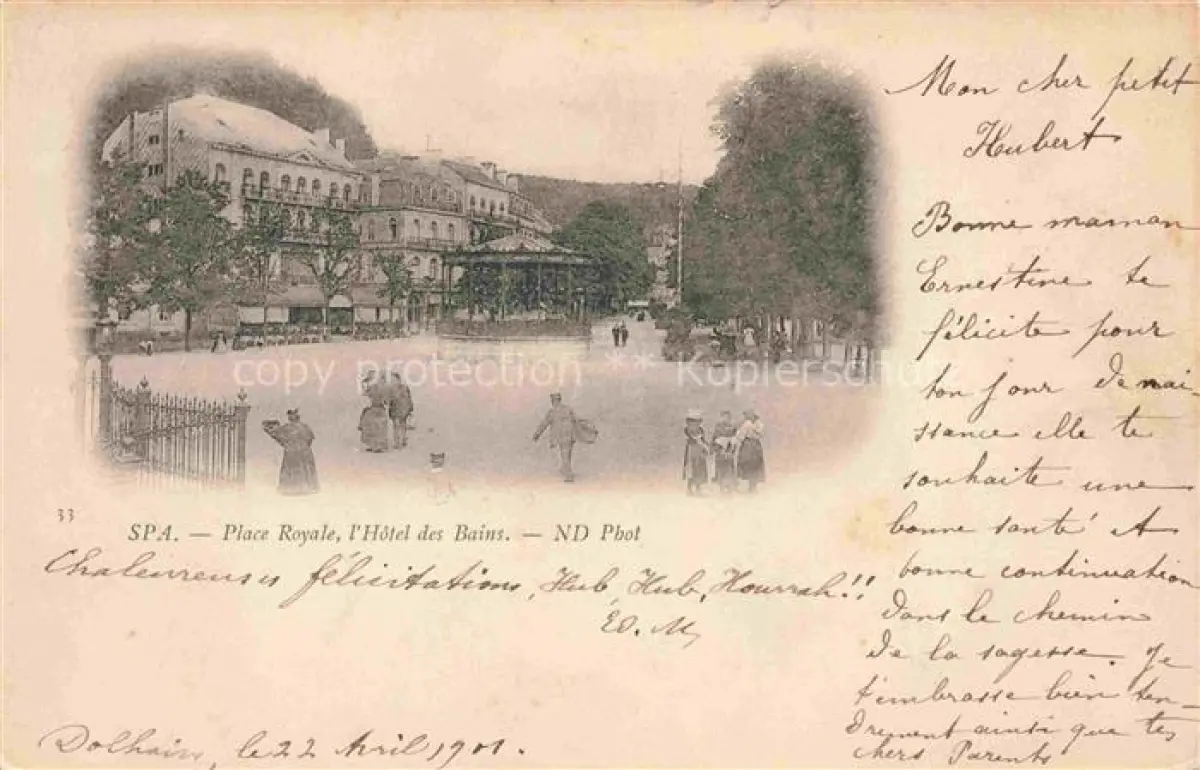 Mon cher petit
Hubert
Bonne maman
Ernestine te
félicite pour
ton jour de nai-
ssance elle te
souhaite une
bonne santé et
bonne continuation
dans le chemin
de la sagesse. Je
t'embrasse bien ten-
drement ainsi que tes
chers Parents
copy protection - Kopierschutz
33
SPA. — Place Royale, l'Hôtel des Bains. — ND Phot
Chaleureuses félicitations, Hub, Hub, Hourrah!!
ED. M,
Dolhain, le 22 Avril 1901.